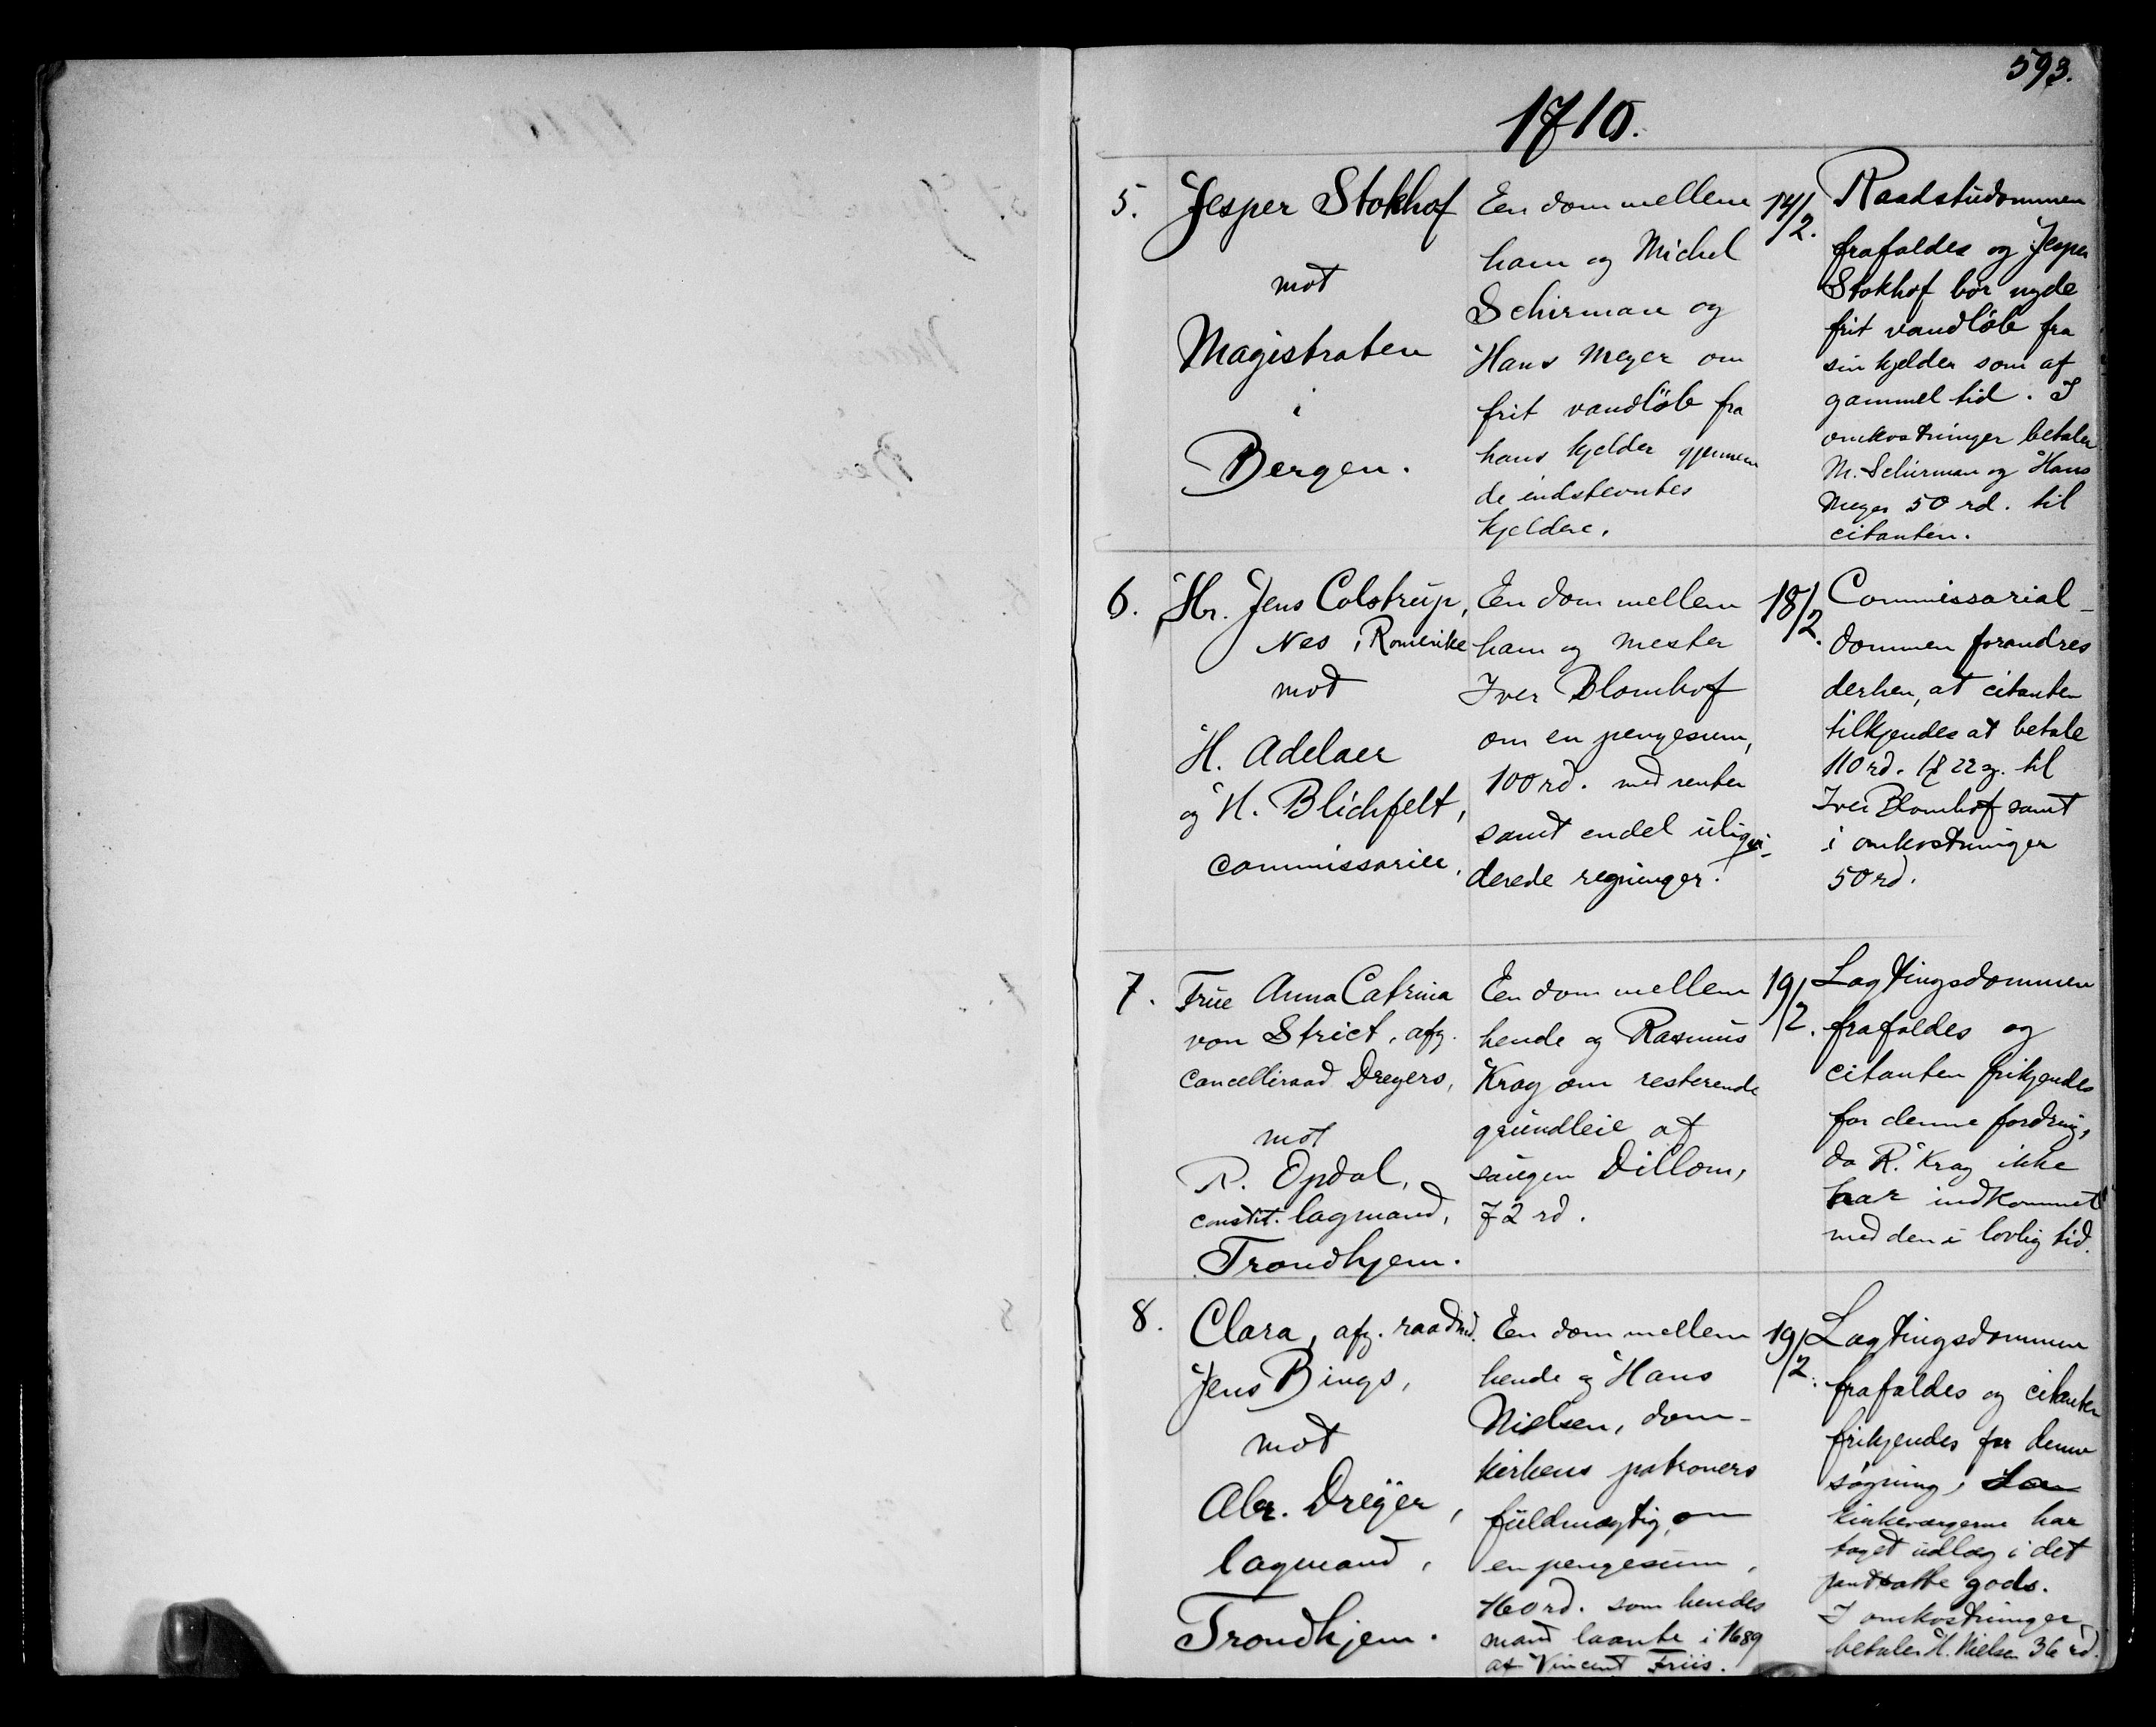 593.
1710.
5.
Jesper Stokhof
mot
Magistraten
i
Bergen.
En dom mellem
ham og Michel
Schirman og
Hans Meyer om
frit vandløb fra
hans kjelder gjennem
de indstevntes
kjeldere.
14/2.
Raadstudommen
frafaldes og Jesper
Stokhof bør nyde
frit vandløb fra
sin kjelder som af
gammel tid. I
omkostninger betaler
M. Schirman og Hans
Meyer 50 rd. til
citanten.
6.
Hr. Jens Colstrup,
Nes i Romerike
mot
H. Adelaer
og H. Blichfelt,
commissarier.
En dom mellem
ham og mester
Iver Blomhof
om en pengesum,
100 rd. med renter
samt endel uliqvi-
derede regninger.
18/2.
Commissarial-
dommen forandres
derhen, at citanten
tilkjendes at betale
110 rd. 1 22 til
Iver Blomhof samt
i omkostninger
50 rd.
7.
Frue Anna Catrina
von Strict, afg.
cancelliraad Dreyers,
mot
R. Opdal,
constit. lagmand,
Trondhjem.
En dom mellem
hende og Rasmus
Krag om resterende
grundleie af
saugen Dillom,
72 rd.
19/2.
Lagtingsdommen
frafaldes og
citanten frikjendes
for denne fordring,
da R. Krag ikke
har indkommet
med den i lovlig tid.
8.
Clara, afg. raadmd.
Jens Bings,
mot
Abr. Dreÿer,
lagmand,
Trondhjem.
En dom mellem
hende og Hans
Nielsen, dom-
kirkens patroners
fuldmægtig, om
en pengesum,
160 rd. som hendes
mand laante i 1689
af Vincent Friis.
19/2.
Lagtingsdommen
frafaldes og citanten
frikjendes for denne
søgning,
kirkeværgerne har
taget udlæg i det
pantsatte gods.
I omkostninger
betaler H. Nielsen 36 rd.